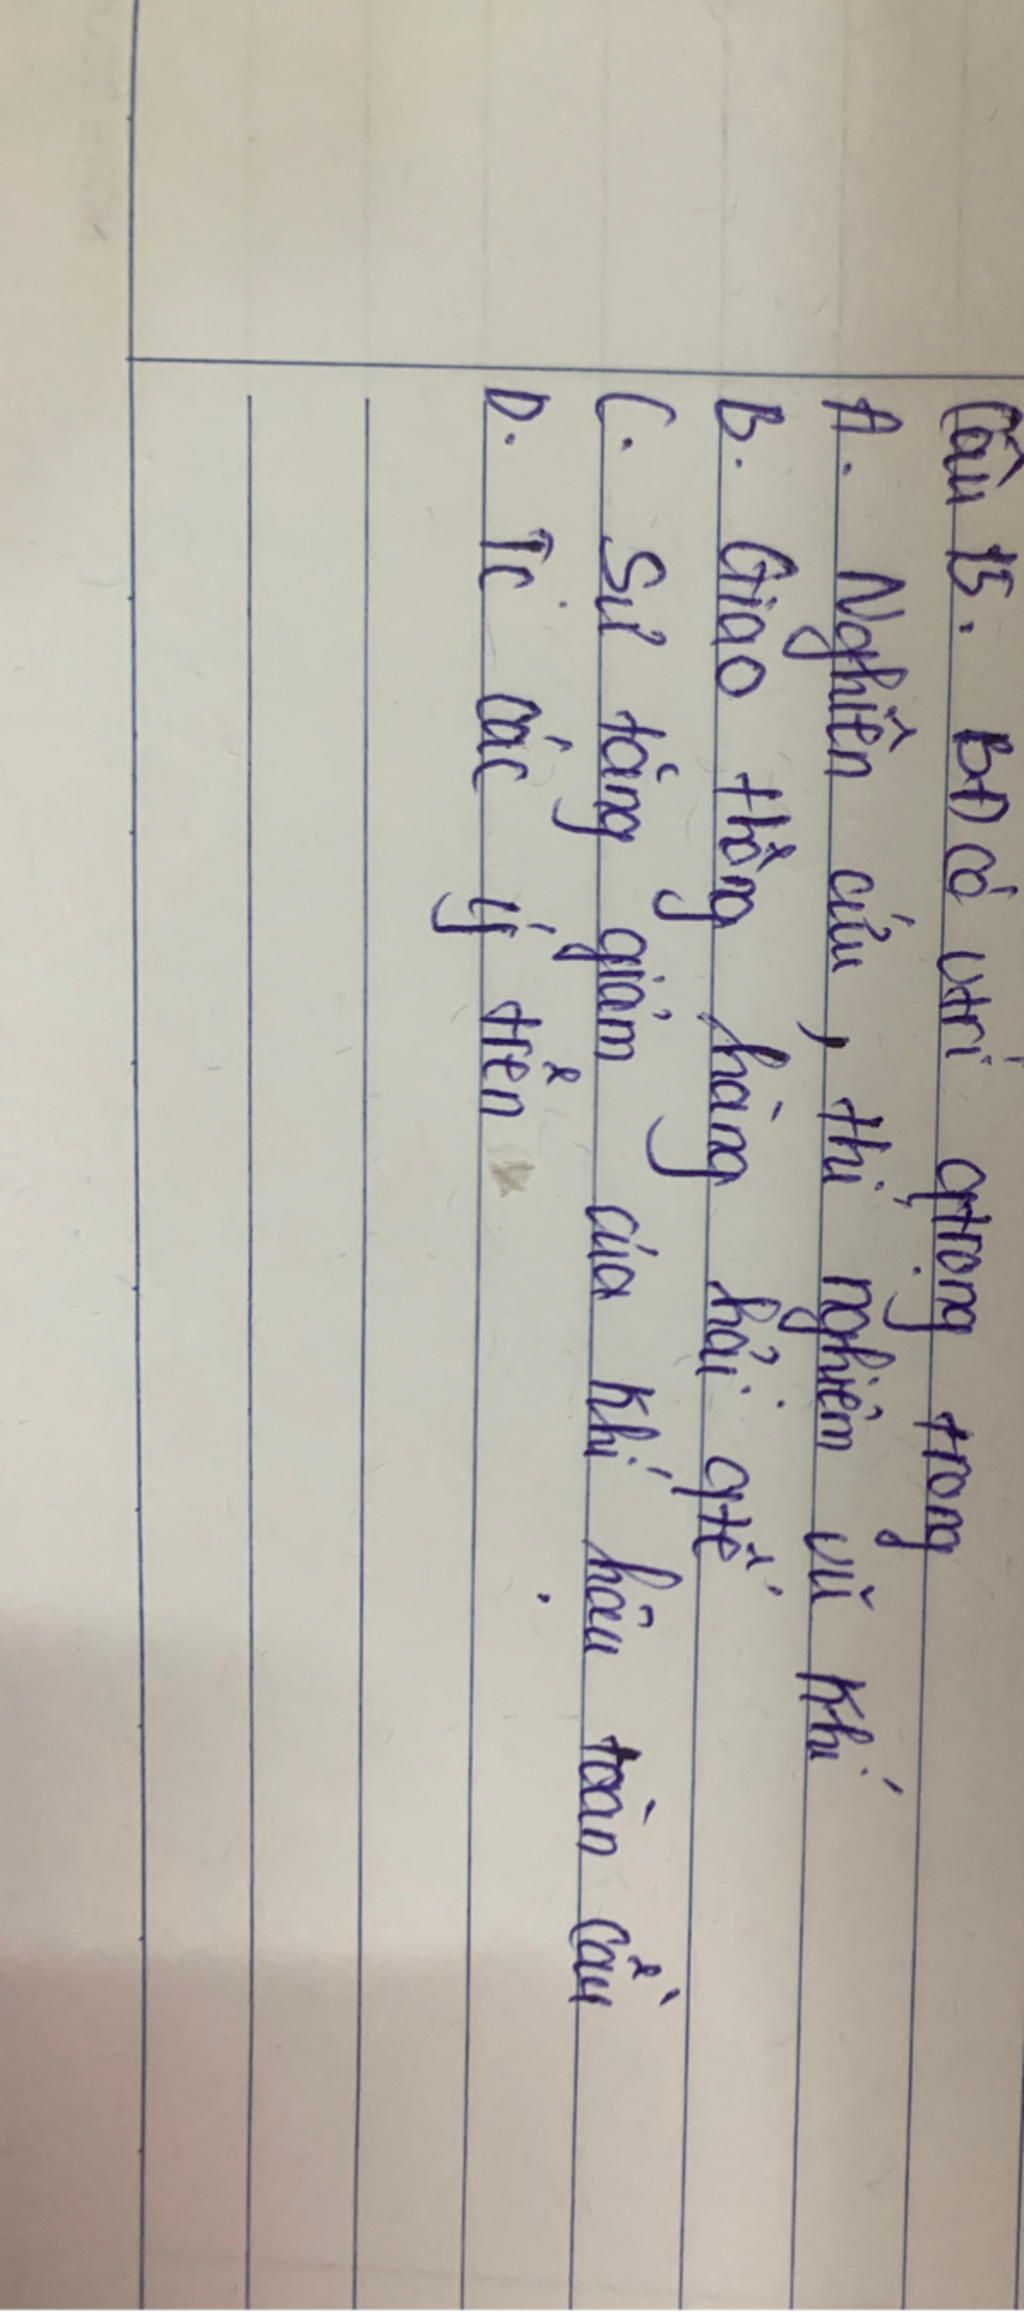 Câu 15. BĐ có vtrí qtrọng trong
A. Nghiên cứu, thí nghiệm vũ khí
B. Giao thông hàng hải qtế
C. Sự tăng giảm của khí hậu toàn cầu
D. Tc các ý trên